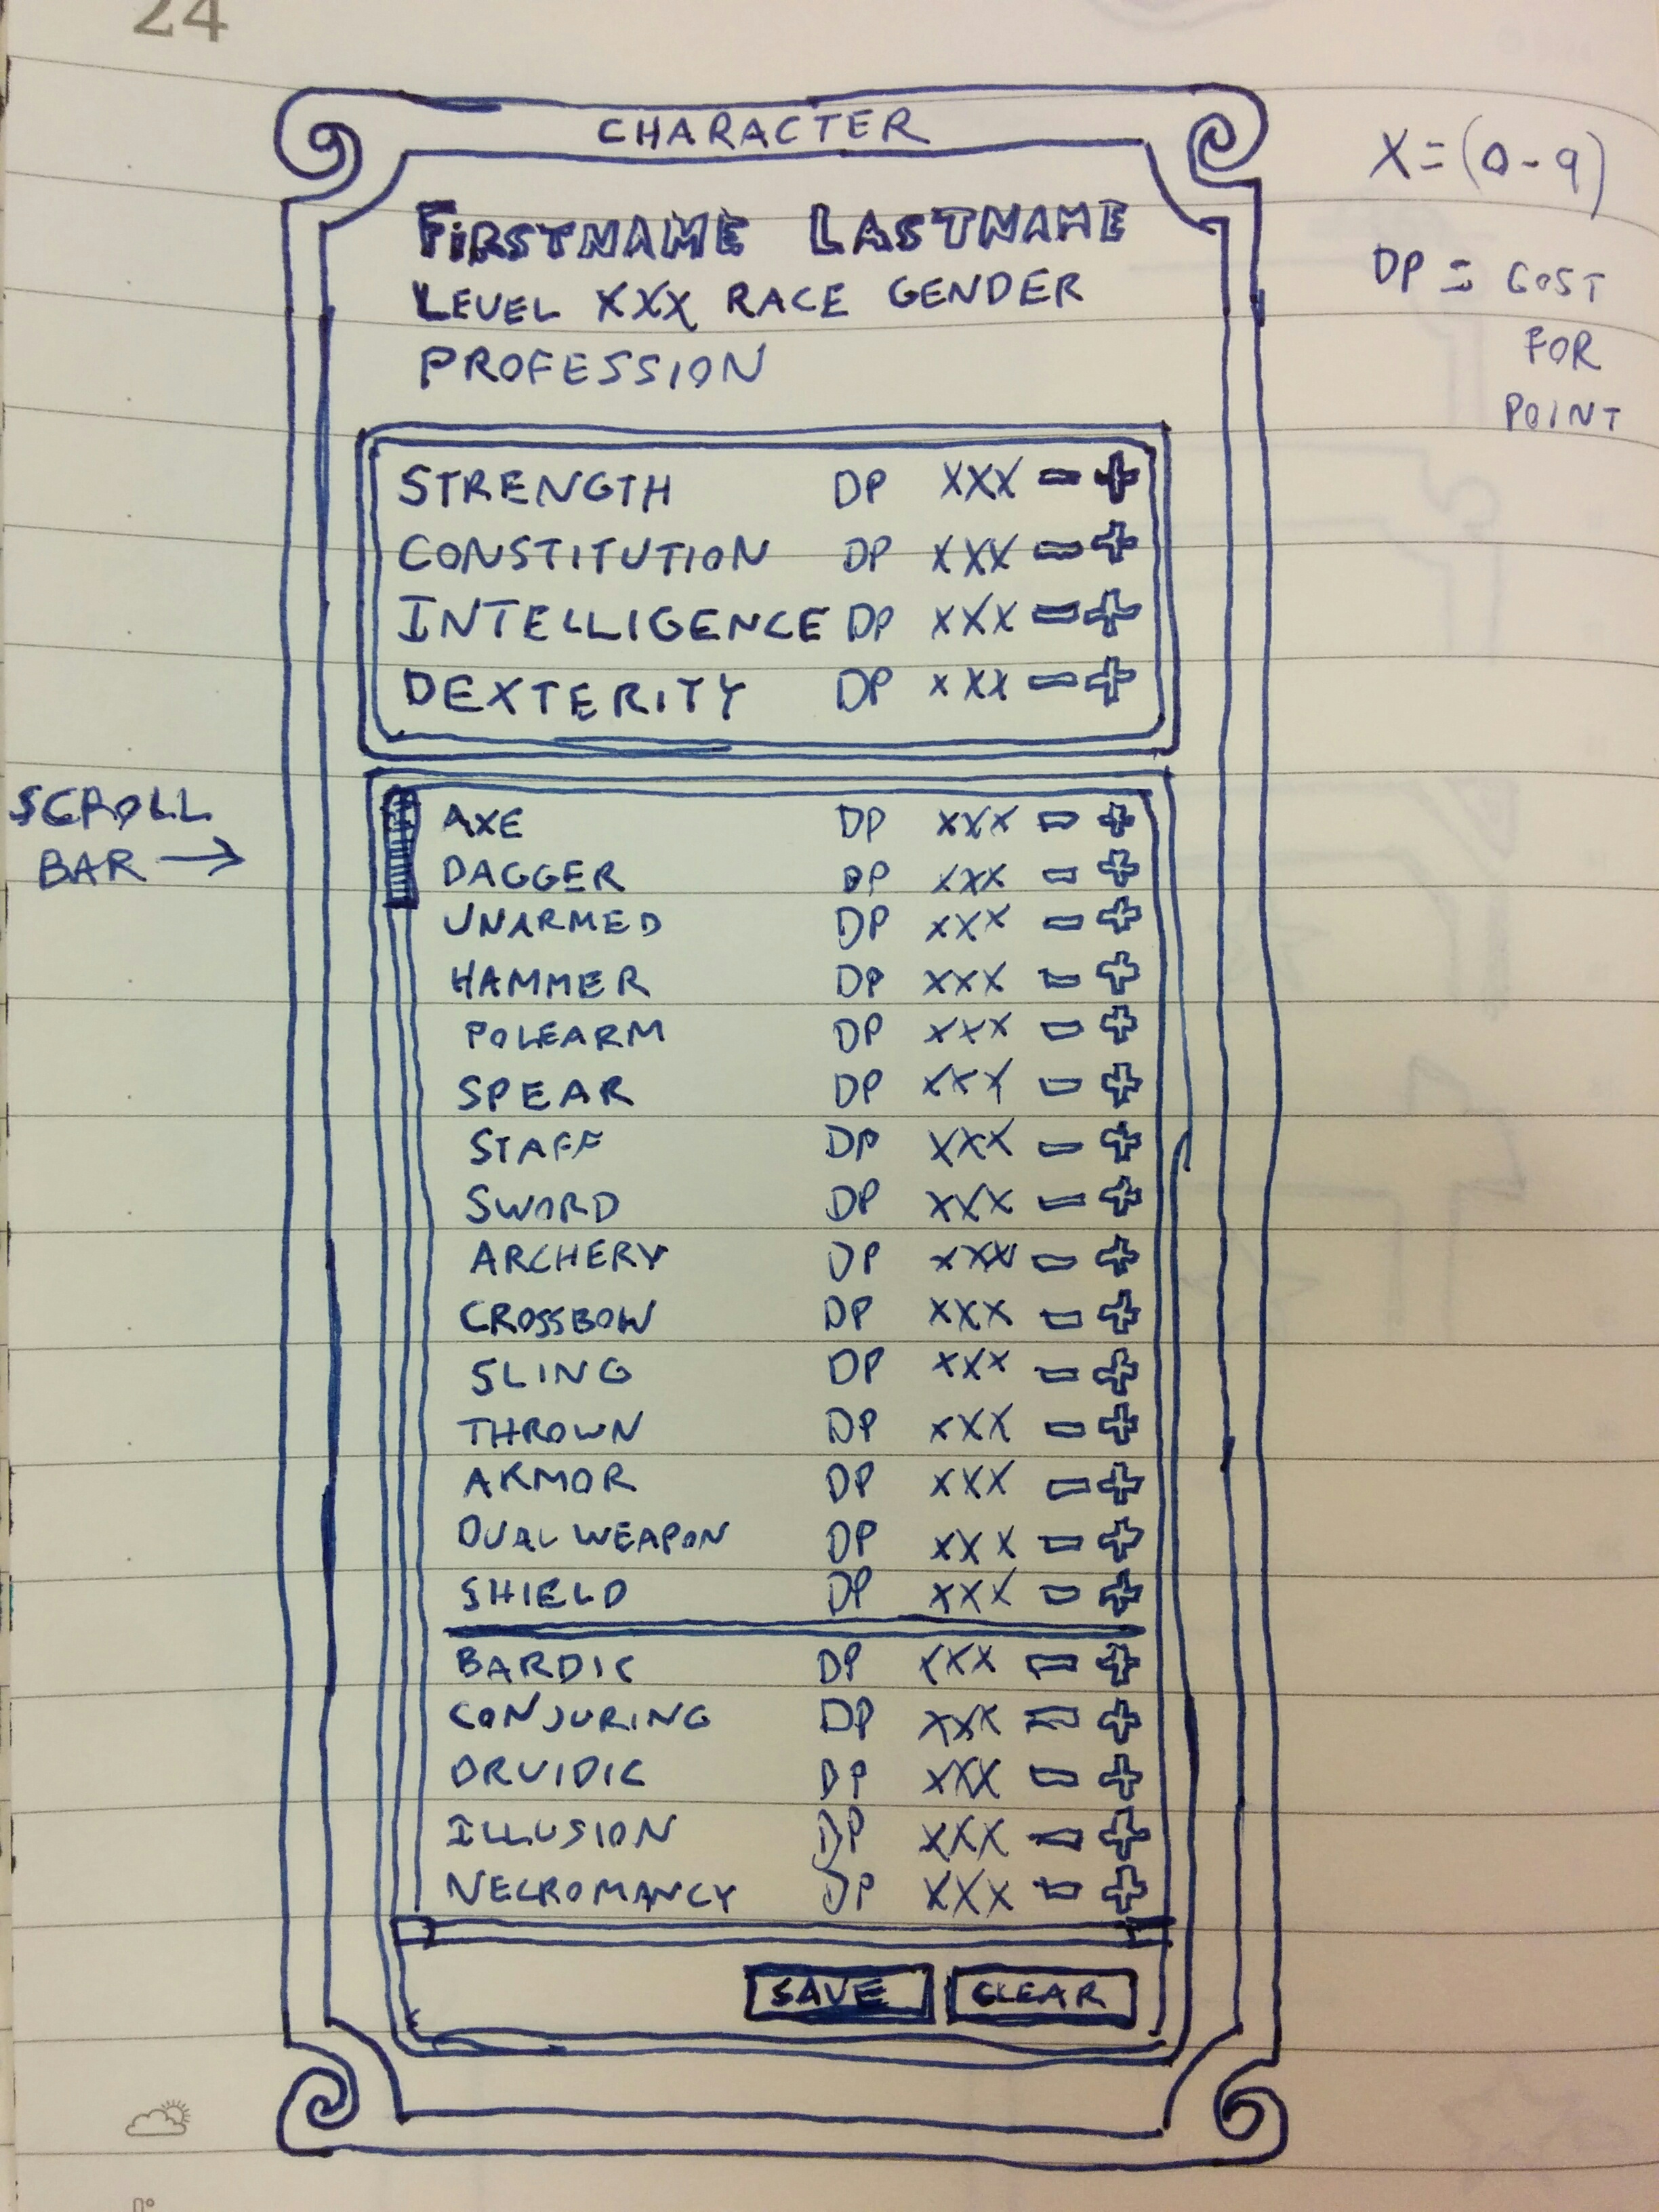 24
CHARACTER
FIRSTNAME LASTNAME
LEVEL XXX RACE GENDER
PROFESSION
X = (0-9)
DP = COST
FOR
POINT
STRENGTH DP XXX - +
CONSTITUTION DP XXX - +
INTELLIGENCE DP XXX - +
DEXTERITY DP XXX - +
SCROLL
BAR →
AXE DP XXX - +
DAGGER DP XXX - +
UNARMED DP XXX - +
HAMMER DP XXX - +
POLEARM DP XXX - +
SPEAR DP XXX - +
STAFF DP XXX - +
SWORD DP XXX - +
ARCHERY DP XXX - +
CROSSBOW DP XXX - +
SLING DP XXX - +
THROWN DP XXX - +
ARMOR DP XXX - +
DUAL WEAPON DP XXX - +
SHIELD DP XXX - +
BARDIC DP XXX - +
CONJURING DP XXX - +
DRUIDIC DP XXX - +
ILLUSION DP XXX - +
NECROMANCY DP XXX - +
SAVE CLEAR